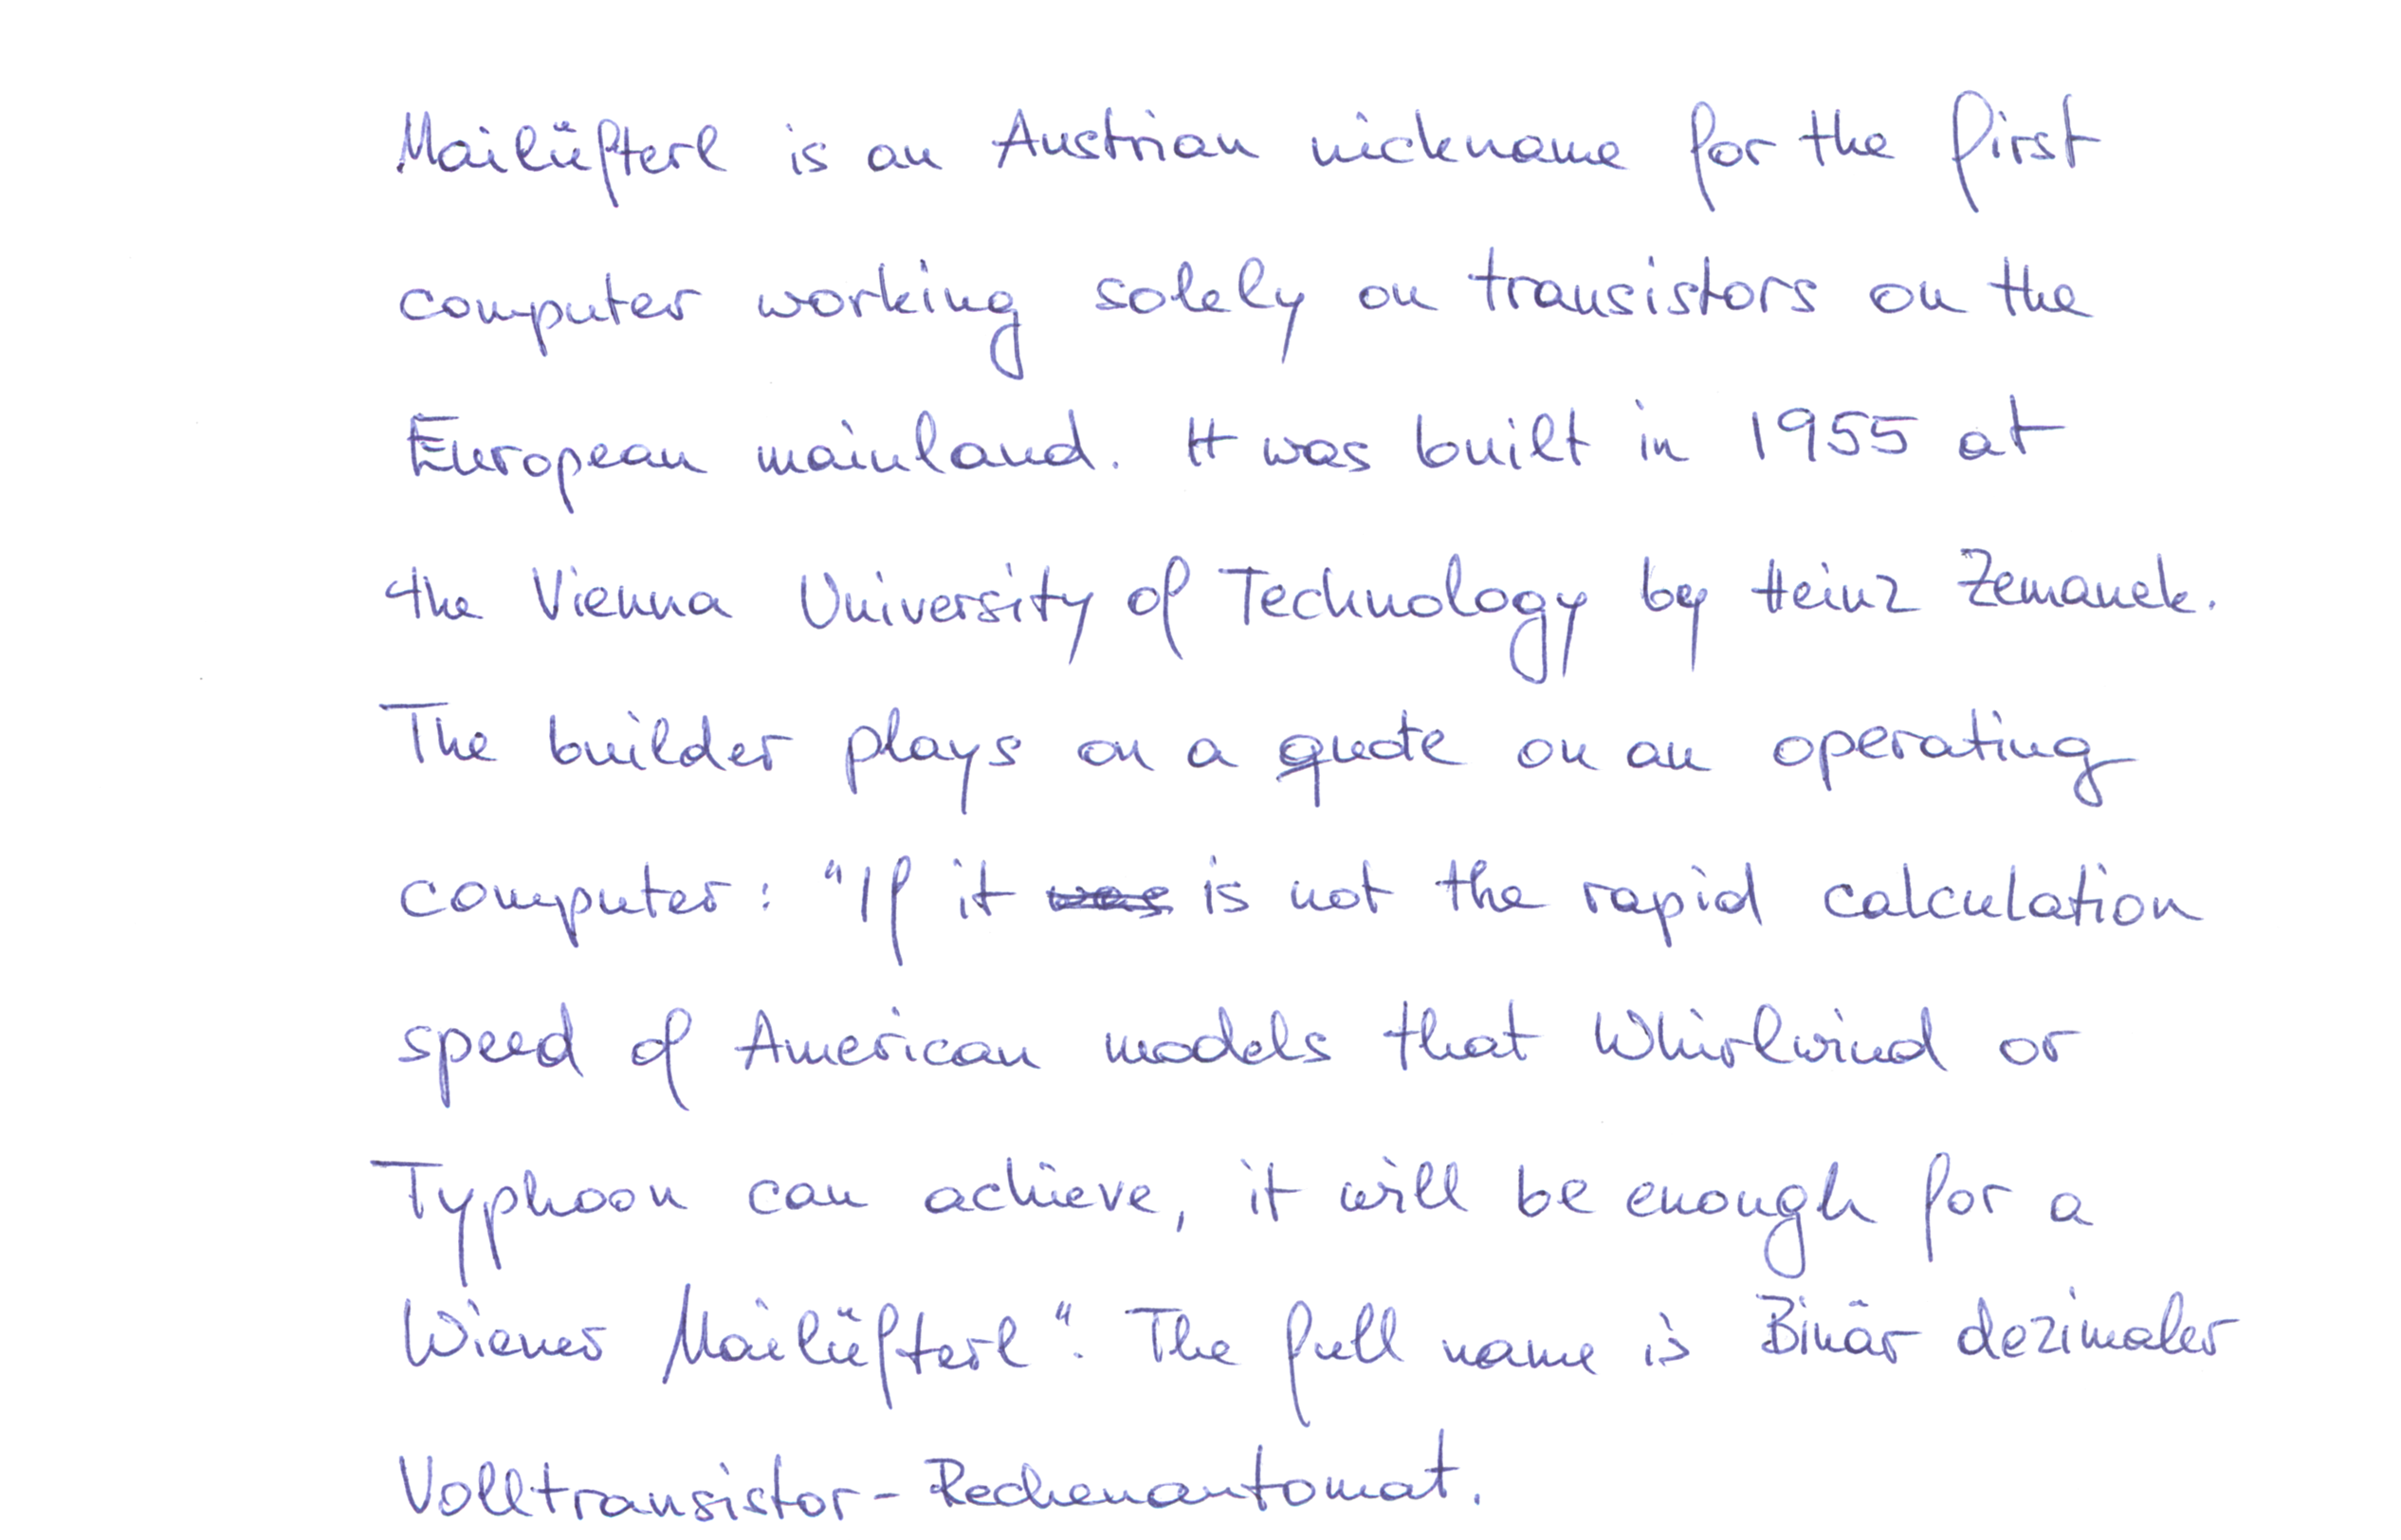 Mailüfterl is an Austrian nickname for the first
computer working solely on transistors on the
European mainland. It was built in 1955 at
the Vienna University of Technology by Heinz Zemanek.
The builder plays on a quote on an operating
computer: "If it was is not the rapid calculation
speed of American models that Whirlwind or
Typhoon can achieve, it will be enough for a
Wiener Mailüfterl". The full name is Binär dezimaler
Volltransistor-Rechenautomat.